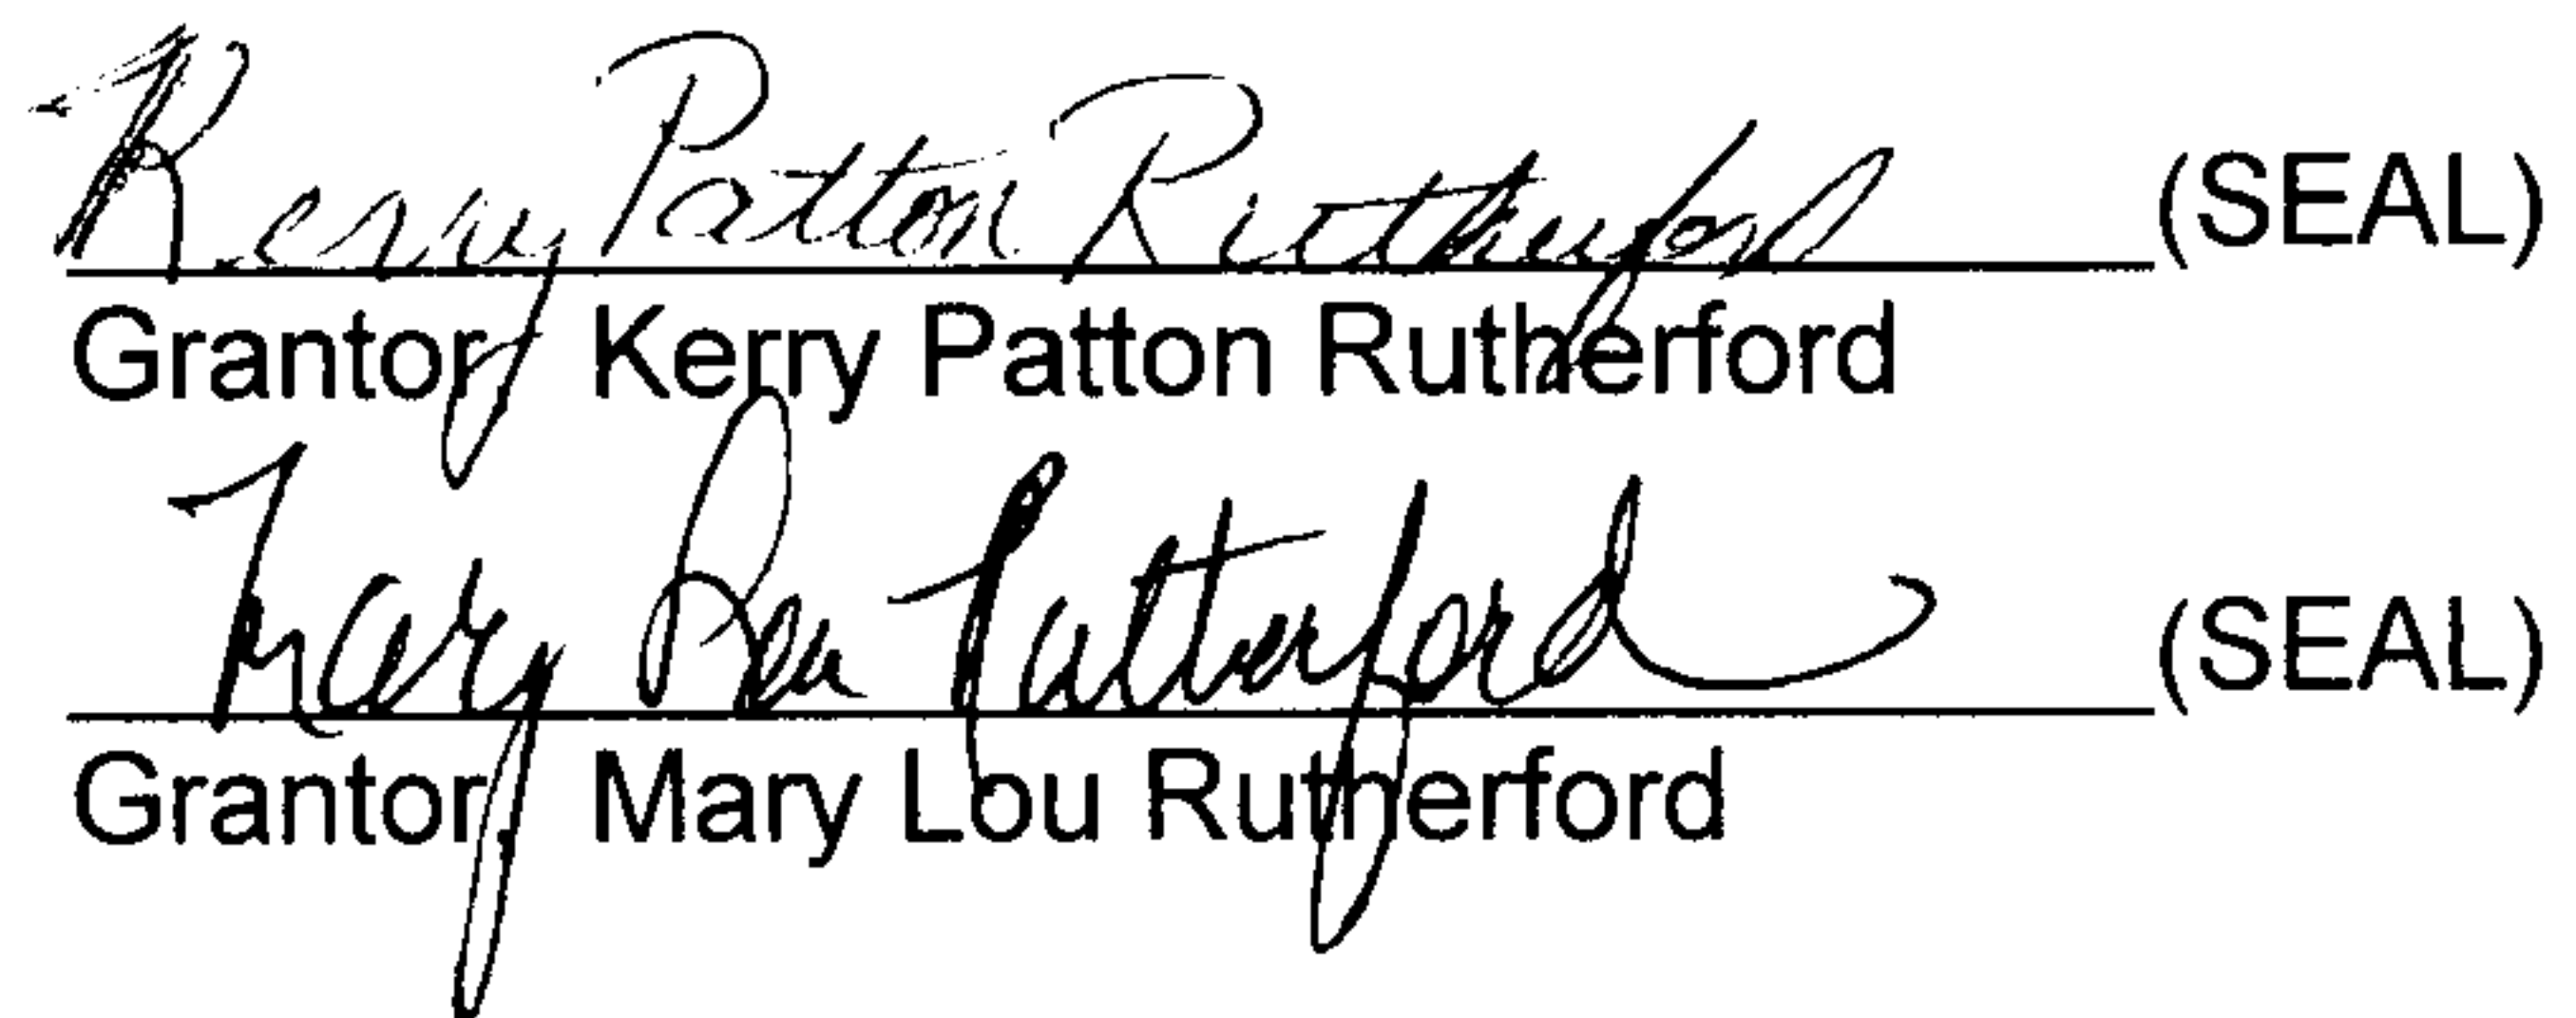 Kerry Patton Rutherford (SEAL)
Grantor, Kerry Patton Rutherford
Mary Lou Rutherford (SEAL)
Grantor, Mary Lou Rutherford